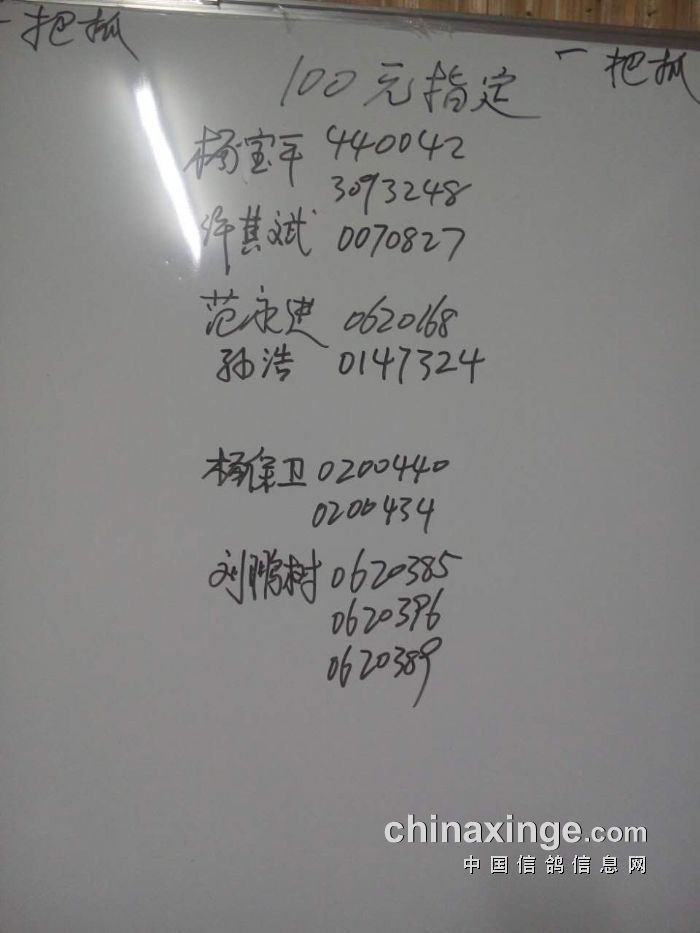 一把抓
一把抓
100元指定
杨宝平 440042
3093248
许其斌 0070827
范永进 0620168
孙浩 0147324
杨保卫 0200440
0200434
刘鹏树 0620385
0620396
0620389
chinaxinge.com
中国信鸽信息网